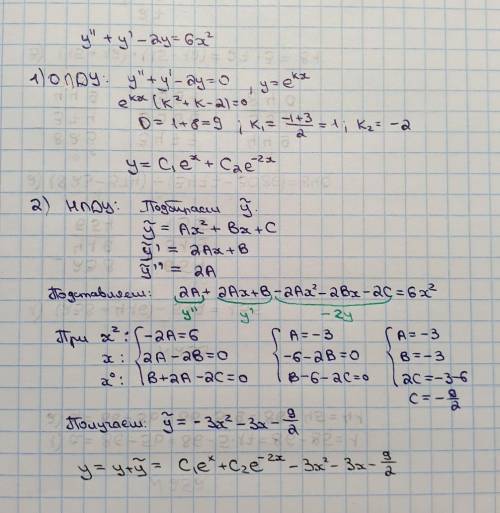 y'' + y' - 2y = 6x²
1) ОЛДУ: y'' + y' - 2y = 0 , y = e^{kx}
e^{kx}(k² + k - 2) = 0
D = 1 + 8 = 9 ; k₁ = \frac{-1+3}{2} = 1 ; k₂ = -2
y = C₁e^{x} + C₂e^{-2x}
2) НЛДУ: Подбираем ỹ.
ỹ = Ax² + Bx + C
ỹ' = 2Ax + B
ỹ'' = 2A
Подставляем: 2A + 2Ax + B - 2Ax² - 2Bx - 2C = 6x²
y'' y' -2y
При x²: { -2A = 6 { A = -3 { A = -3
x: 2A - 2B = 0 -6 - 2B = 0 B = -3
x⁰: B + 2A - 2C = 0 B - 6 - 2C = 0 2C = -3 - 6
C = -\frac{9}{2}
Получаем: ỹ = -3x² - 3x - \frac{9}{2}
y = y + ỹ = C₁e^{x} + C₂e^{-2x} - 3x² - 3x - \frac{9}{2}